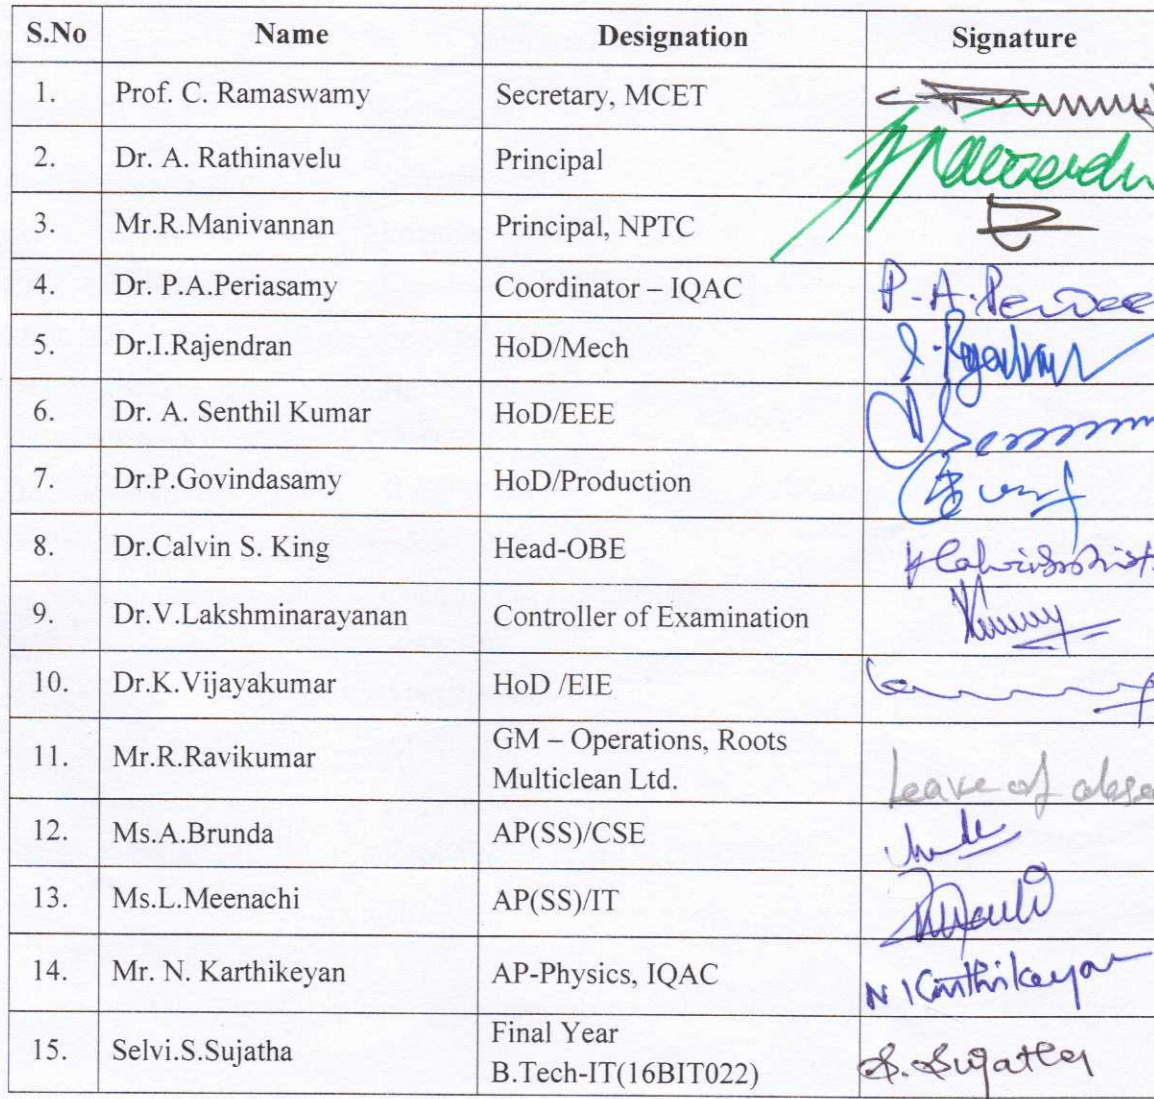 S.No Name Designation Signature
1. Prof. C. Ramaswamy Secretary, MCET
2. Dr. A. Rathinavelu Principal
3. Mr.R.Manivannan Principal, NPTC
4. Dr. P.A.Periasamy Coordinator – IQAC P.A.
5. Dr.I.Rajendran HoD/Mech
6. Dr. A. Senthil Kumar HoD/EEE
7. Dr.P.Govindasamy HoD/Production
8. Dr.Calvin S. King Head-OBE
9. Dr.V.Lakshminarayanan Controller of Examination
10. Dr.K.Vijayakumar HoD /EIE
11. Mr.R.Ravikumar GM – Operations, Roots
Multiclean Ltd. Leave of abse
12. Ms.A.Brunda AP(SS)/CSE
13. Ms.L.Meenachi AP(SS)/IT
14. Mr. N. Karthikeyan AP-Physics, IQAC N Karthikeyan
15. Selvi.S.Sujatha Final Year
B.Tech-IT(16BIT022) S. Sujatha